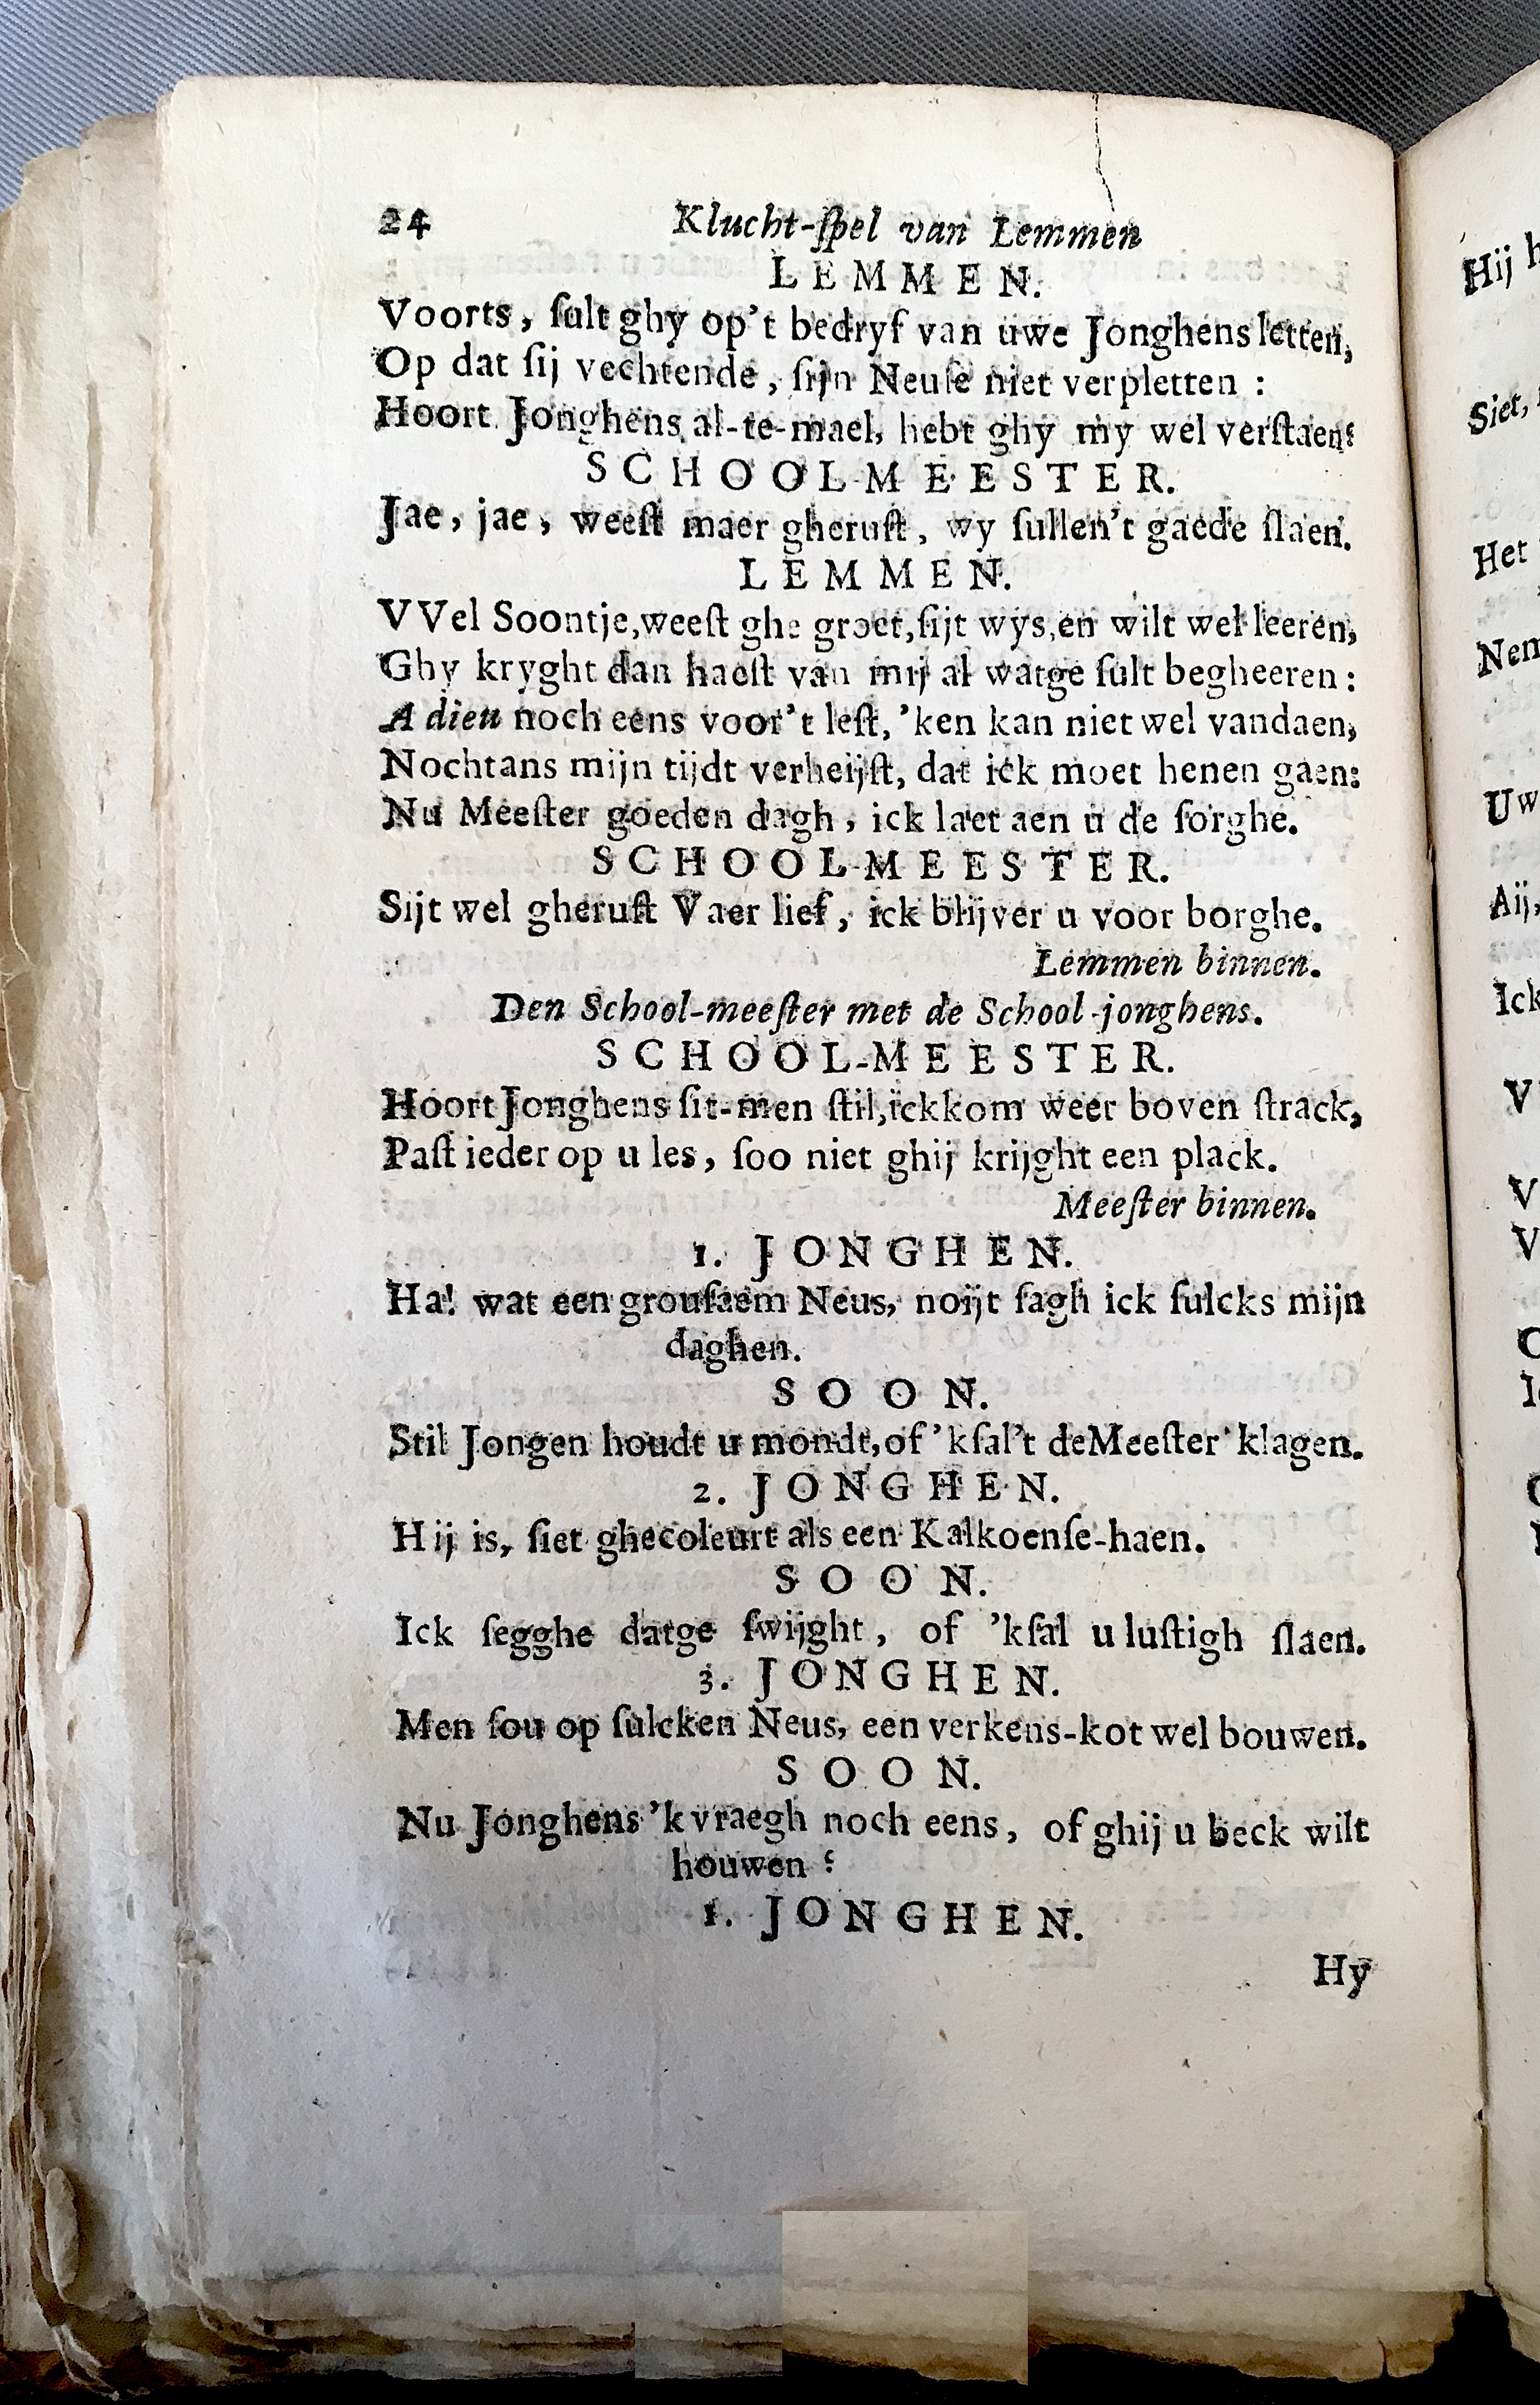 24 Klucht-ſpel van Lemmen
LEMMEN.
Voorts, ſult ghy op't bedryf van uwe Jonghens letten,
Op dat ſij vechtende, ſijn Neuſe niet verpletten :
Hoort Jonghens al-te-mael, hebt ghy my wel verſtaen?
SCHOOL-MEESTER.
Jae, jae, weeſt maer gheruſt, wy ſullen't gaede ſlaen.
LEMMEN.
VVel Soontje,weeſt ghe groet,ſijt wys,en wilt wel leeren,
Ghy kryght dan haeſt van mij al watge ſult begheeren :
A dieu noch eens voor't leſt, 'ken kan niet wel vandaen,
Nochtans mijn tijdt verheijſt, dat ick moet henen gaen:
Nu Meeſter goeden dagh, ick laet aen u de ſorghe.
SCHOOL-MEESTER.
Sijt wel gheruſt Vaer lief, ick blijver u voor borghe.
Lemmen binnen.
Den School-meeſter met de School-jonghens.
SCHOOL-MEESTER.
Hoort Jonghens ſit-men ſtil,ick kom weer boven ſtrack,
Paſt ieder op u les, ſoo niet ghij krijght een plack.
Meeſter binnen.
1. JONGHEN.
Ha! wat een grouſaem Neus, noijt ſagh ick ſulcks mijn
daghen.
SOON.
Stil Jongen houdt u mondt,of 'kſal't de Meeſter klagen.
2. JONGHEN.
Hij is, ſiet ghecoleurt als een Kalkoenſe-haen.
SOON.
Ick ſegghe datge ſwijght, of 'kſal u luſtigh ſlaen.
3. JONGHEN.
Men ſou op ſulcken Neus, een verkens-kot wel bouwen.
SOON.
Nu Jonghens 'k vraegh noch eens, of ghij u beck wilt
houwen ?
1. JONGHEN.
Hy
Hij
Siet,
Het
Uw
Aij,
Ick
V
V
V